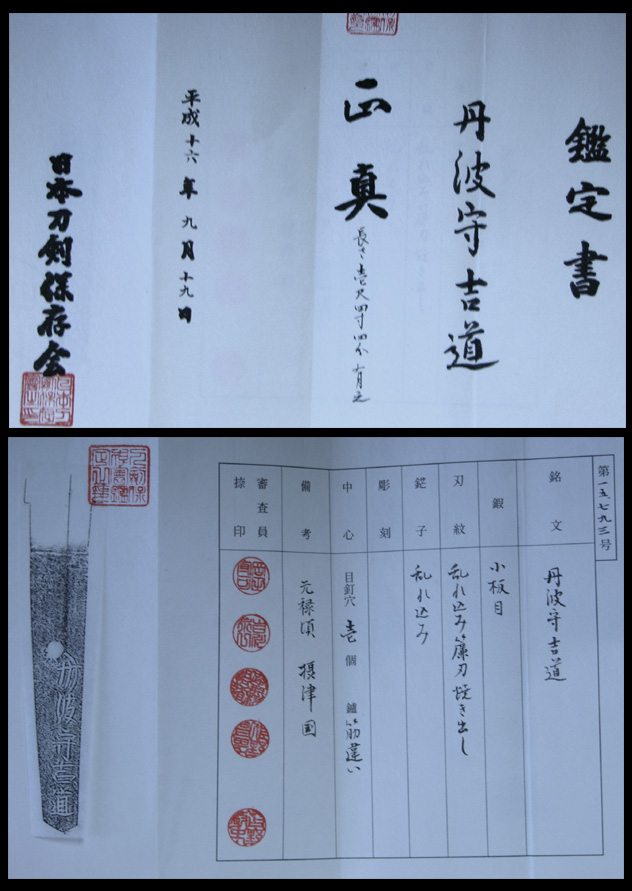 鑑定書
丹波守吉道
正真
長さ壱尺四寸四分有之
平成十六年九月十九日
日本刀剣保存会
第一五七九三号
銘文
丹波守吉道
鍛
小板目
刃紋
乱れ込み簾刃焼き出し
鋩子
乱れ込み
彫刻
中心
目釘穴 壱 個 鑢 筋違い
備考
元禄頃 摂津国
審査員
捺印
丹波守吉道